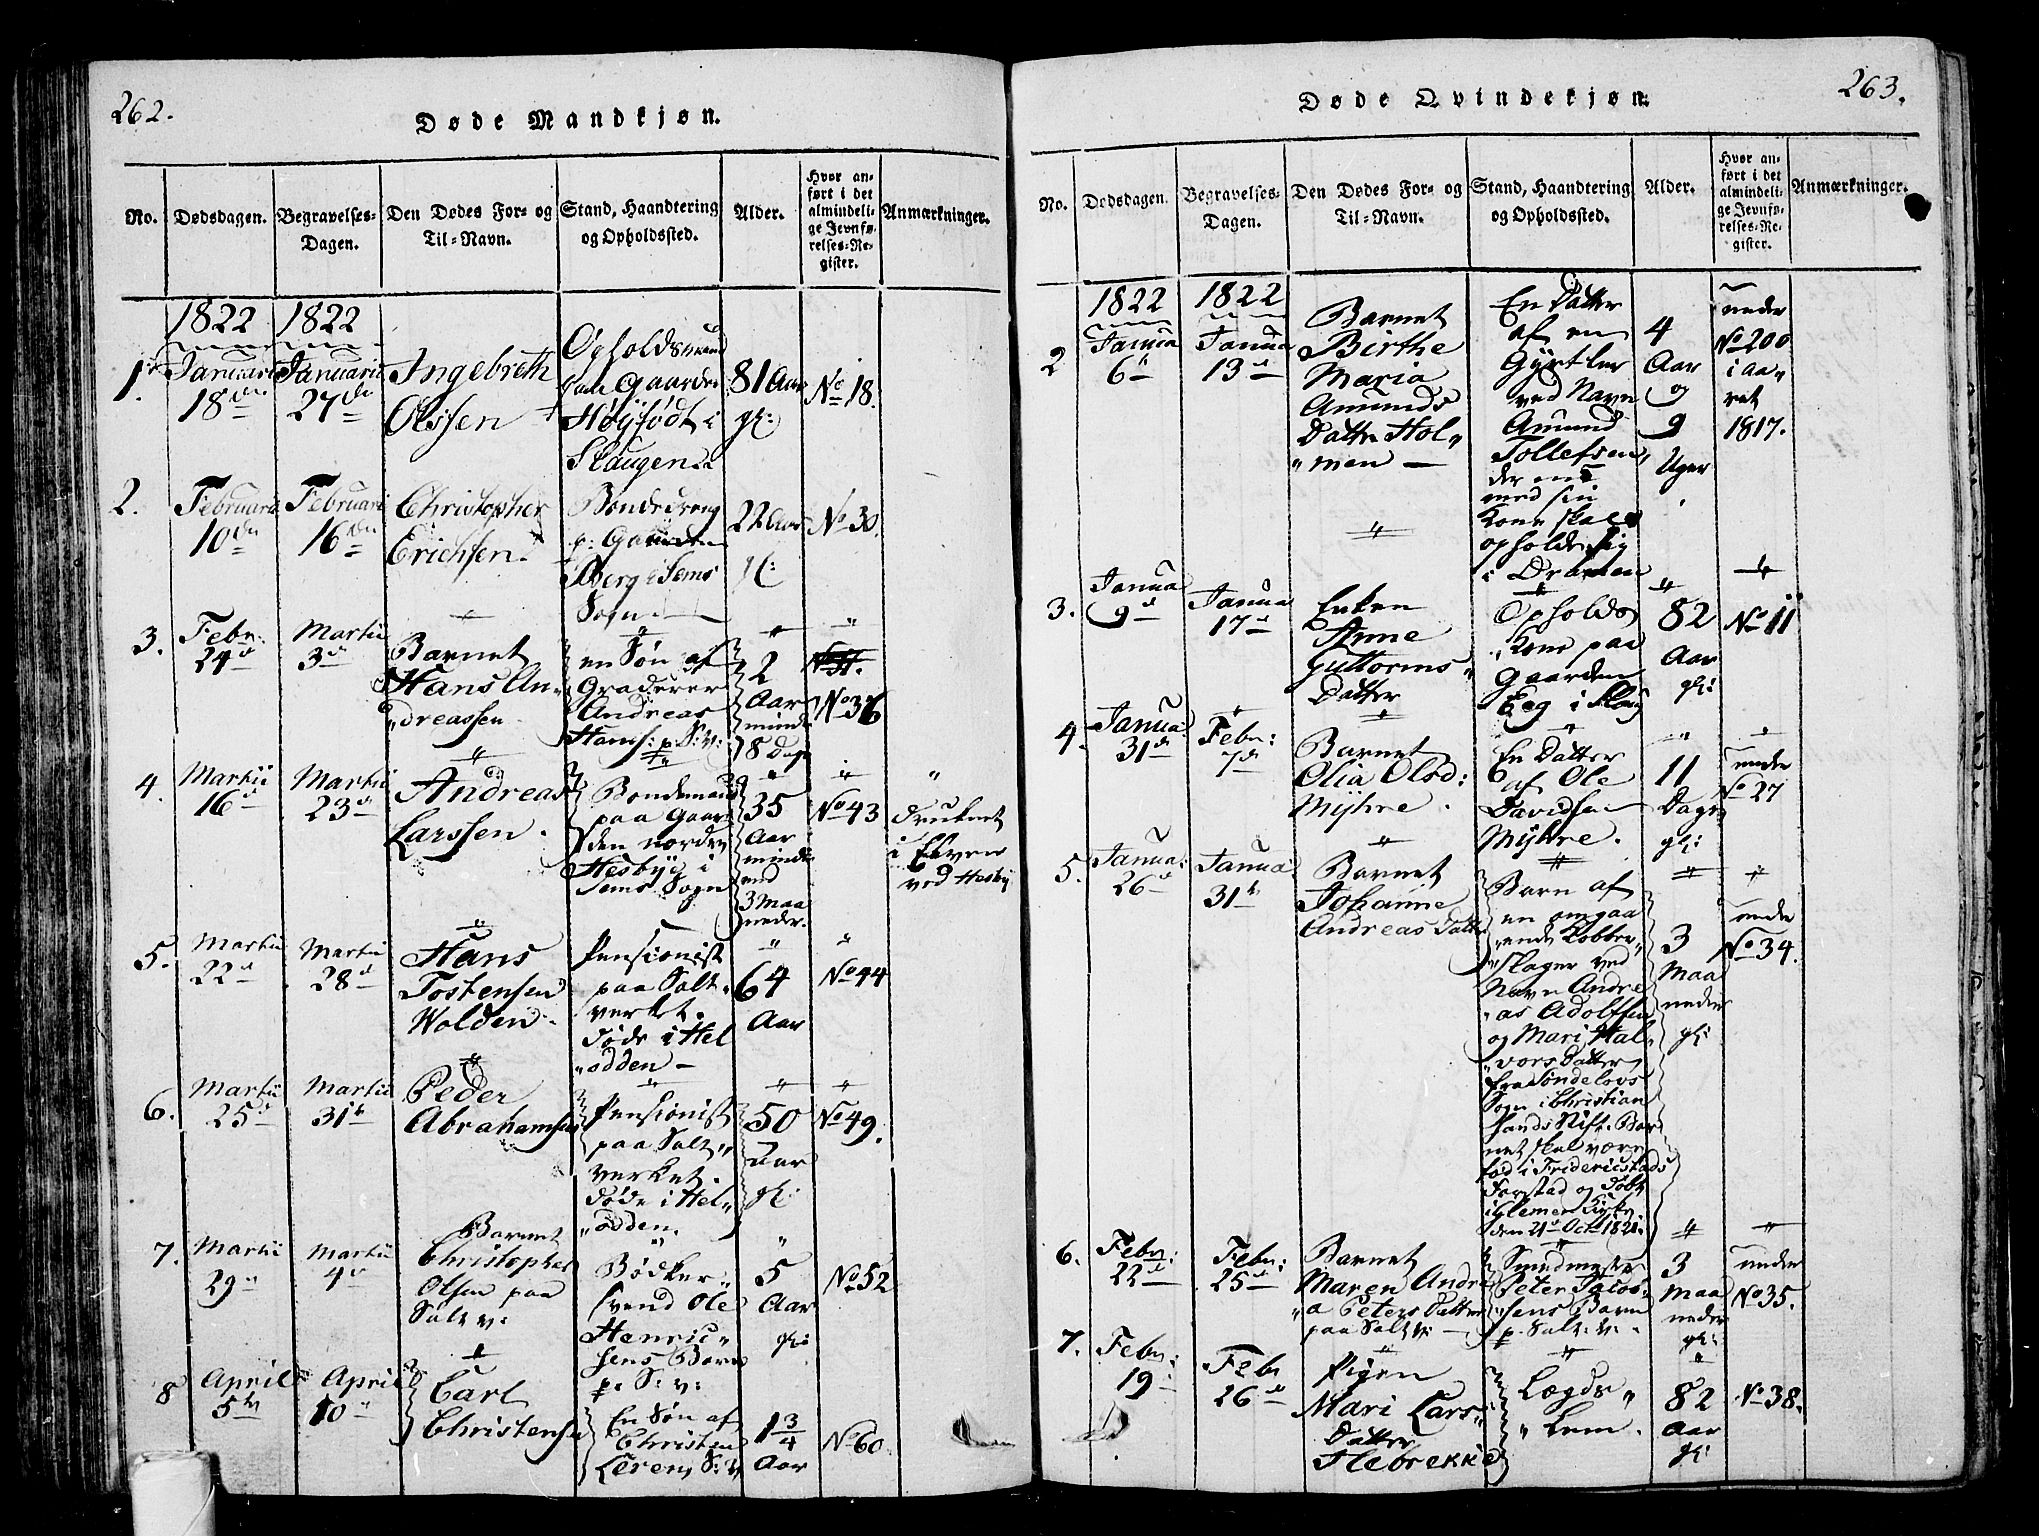 262.
Døde Mandkjøn.
No.
Dødsdagen.
Begravelses-
Dagen.
Den Dødes For- og
Til-Navn.
Stand, Haandtering
og Opholdssted.
Alder.
Hvor an-
ført i det
almindeli-
ge Jevnfø-
relses-Re-
gister.
Anmærkninger.
1822
1822
1.
Januarii
18de
Januarii
27de
Ingebreth
Olssen
Opholdsmand
paa Gaarden
Høÿjødt i
Slaugen
81 Aar
gl:
No 18.
2.
Februarii
10de
Februarii
16de
Christopher
Erichsen
Bondedreng
p: Gaarden
Berg i Sems
Sogn
22 Aar
gl:
No 30.
3.
Febr:
24d
Martii
3d
Barnet
Hans An-
dreassen
en Søn af
Graderer
Andreas
Hans: p. S: v:
2
Aar
mindre
8 Dage
No 36
4.
Martii
16d
Martii
23d
Andreas
Larssen.
Bondemand
paa Gaar-
den nordre
Hesbÿe i
Sems Sogn
35
Aar
mindre
end
3 Maa
neder.
No 43
druknet
i Elven
ved Hesby
5.
Martii
22d
Martii
28d
Hans
Tostensen
Wolden.
Pensionist
paa Salt-
verket.
døde i Hel
odden
64
Aar
No 44
6.
Martii
25d
Martii
31te
Peder
Abrahamsen
Pensionist
paa Salt-
verket.
døde i Hel-
odden.
50
Aar
gl:
No 49.
7.
Martii
29d
Martii
4d
Barnet
Christopher
Olsen paa
Salt v:
Bødker
svend Ole
Henric-
sens Barn
p. S: v:
5
Aar
gl:
No 52
8
April
5te
April
10
Carl
Christensen
En Søn af
Christen
Lerens S: v
1 3/4
Aar
No 60.
263.
Døde Qvindekjøn.
No.
Dødsdagen.
Begravelses-
Dagen.
Den Dødes For- og
Til-Navn.
Stand, Haandtering
og Opholdssted.
Alder.
Hvor an-
ført i det
almindeli-
ge Jevnfø-
relses-Re-
gister.
Anmærkninger.
1822
1822
2
Janua
6te
Janua
13d
Barnet
Birthe
Maria
Amunds
Datter Hol-
men
En Datter
af en
Gÿrtler
ved Navn
Amund
Tollefsen,
der
med sin
Kone skal
opholde sig
i Dramen
4
Aar
og
9
Uger
under
No 200
i aa-
ret
1817.
3.
Janua
9d
Janua
17d
Enken
Anne
Guttorms
Datter
Opholds
Kone paa
Gaarden
Eeg i Slaug
82
Aar
gl:
No 11
4.
Janua
31de
Febr:
7de
Barnet
Olia Olsd:
Mÿhre
En Datter
af Ole
Davidsen
Mÿhre.
11
Dage
gl:
under
No 27
5.
Janua:
26d
Janua
31te
Barnet
Johanne
Andreas Datter
Barn af
en omgaa
ende Kobber-
slager ved
Navn Andre
as Adolfsen
og Mari Hal-
vors Datter,
fra Søndelovs
Sogn i Christian
sands Stift. Bar
net skal være
fød i Fridericstads
Forstad og døbt
i Glemen Kirke
den 21d Octr 1821.
3
Maa
neder
gl:
under
No 34.
6.
Febr:
22d
Febr:
25d
Barnet
Maren Andre
a Peters Datter
paa Salt v:
Smedmester
Peter Jacob-
sens Barn
p. Salt: v:
3
Maa
neder
gl:
under
No 35.
7.
Febr:
19
Febr
26d
Pigen
Mari Lars
Datter
Flebrekke
Lægds
Lem.
82
Aar
gl:
No 38.